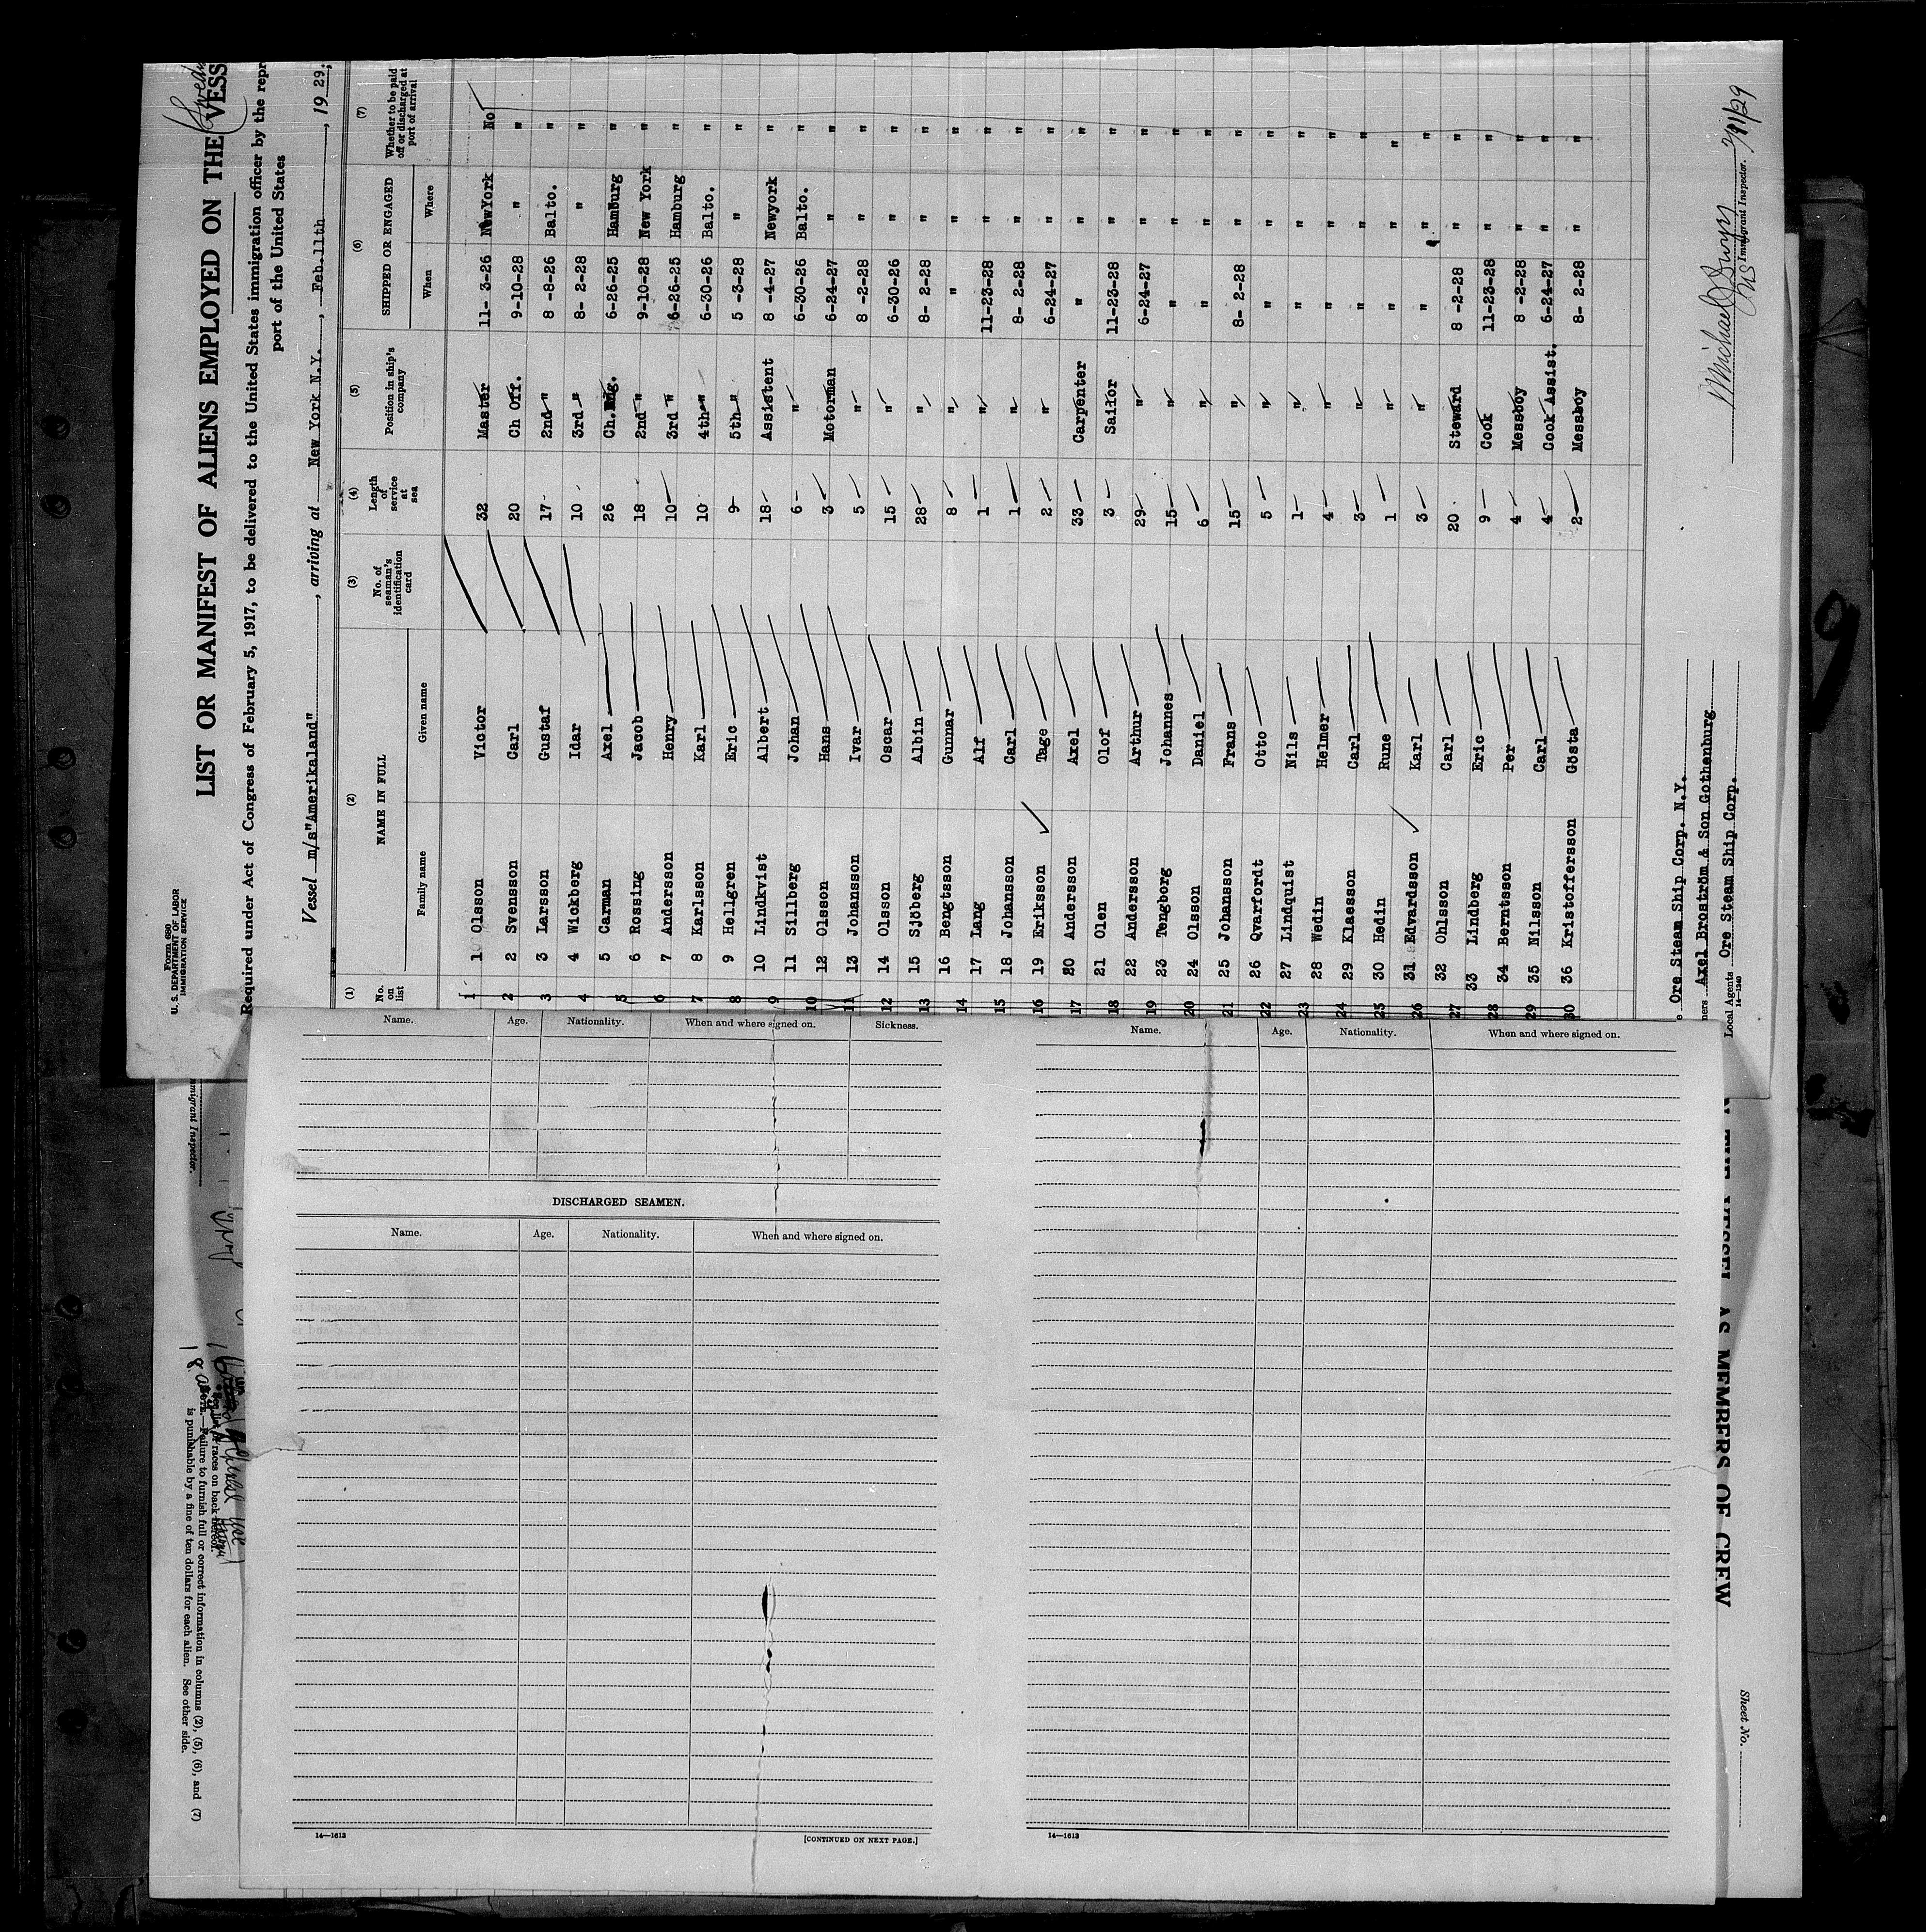 Form 680
U. S. DEPARTMENT OF LABOR
IMMIGRATION SERVICE
LIST OR MANIFEST OF ALIENS EMPLOYED ON THE VESS
Required under Act of Congress of February 5, 1917, to be delivered to the United States immigration officer by the repr
port of the United States
Vessel m/s"Amerikaland", arriving at New York N.Y., Feb.11th, 19 29,
(1) (2) (3) (4) (5) (6) (7)
No. on list NAME IN FULL No. of seaman's identification card Length of service at sea Position in ship's company SHIPPED OR ENGAGED Whether to be paid off or discharged at port of arrival
Family name Given name When Where
1 1 Olsson Victor 32 Master 11- 3-26 NewYork No
2 2 Svensson Carl 20 Ch Off. 9-10-28 " "
3 3 Larsson Gustaf 17 2nd " 8 -8-26 Balto. "
4 4 Wickberg Idar 10 3rd " 8- 2-28 " "
5 5 Carman Axel 26 Ch.Eng. 6-26-25 Hamburg "
6 6 Rossing Jacob 18 2nd " 9-10-28 New York "
7 7 Andersson Henry 10 3rd " 6-26-25 Hamburg "
8 8 Karlsson Karl 10 4th " 6-30-26 Balto. "
9 9 Hellgren Eric 9 5th " 5 -3-28 " "
10 10 Lindkvist Albert 18 Assistent 8 -4-27 Newyork "
11 11 Sillberg Johan 6 " 6-30-26 Balto. "
12 12 Olsson Hans 3 Motorman 6-24-27 " "
13 13 Johansson Ivar 5 " 8 -2-28 " "
14 14 Olsson Oscar 15 " 6-30-26 " "
15 15 Sjöberg Albin 28 " 8- 2-28 " "
16 16 Bengtsson Gunnar 8 " " " "
17 17 Lang Alf 1 " 11-23-28 " "
18 18 Johansson Carl 1 " 8- 2-28 " "
19 19 Eriksson Tage 2 " 6-24-27 " "
20 20 Andersson Axel 33 Carpenter " " "
21 21 Olen Olof 3 Sailor 11-23-28 " "
22 22 Andersson Arthur 29 " 6-24-27 " "
23 23 Tengborg Johannes 15 " " " "
24 24 Olsson Daniel 6 " " " "
25 25 Johansson Frans 15 " 8- 2-28 " "
26 26 Qvarfordt Otto 5 " " " "
27 27 Lindquist Nils 1 " " " "
28 28 Wedin Helmer 4 " " " "
29 29 Klaesson Carl 3 " " " "
30 30 Hedin Rune 1 " " " "
31 Edvardsson Karl 3 " " " "
32 Ohlsson Carl 20 Steward 8 -2-28 " "
33 Lindberg Eric 9 Cook 11-23-28 " "
34 Berntsson Per 4 Messboy 8 -2-28 " "
35 Nilsson Carl 4 Cook Assist. 6-24-27 " "
36 Kristoffersson Gösta 2 Messboy 8- 2-28 " "
Ore Steam Ship Corp. N.Y.
ners Axel Broström & Son Gothenburg
Local Agents Ore Steam Ship Corp.
14—1240
Immigrant Inspector.
Name. Age. Nationality. When and where signed on. Sickness.
DISCHARGED SEAMEN.
Name. Age. Nationality. When and where signed on.
14—1613 [CONTINUED ON NEXT PAGE.]
Name. Age. Nationality. When and where signed on.
14—1613
mmigrant Inspector.
races on back hereof.
NOTE.—Failure to furnish full or correct information in columns (2), (5), (6), and (7)
is punishable by a fine of ten dollars for each alien. See other side.
VESSEL AS MEMBERS OF CREW
Sheet No.